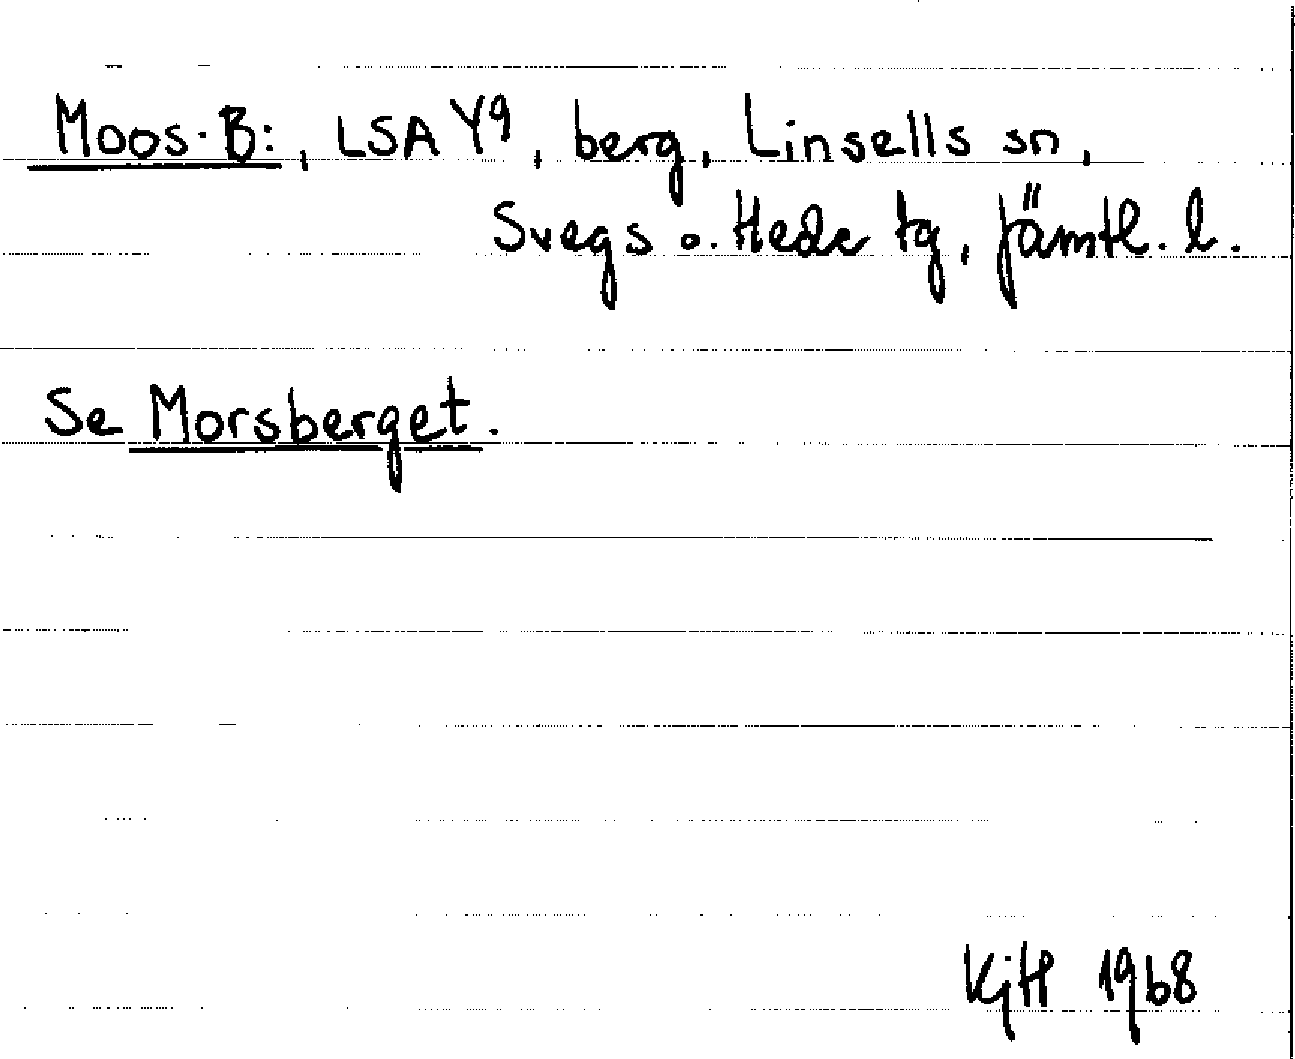 Moos-B:, LSA Y9, berg, Linsells sn,
Svegs o. Hede tg, Jämtl. l.
Se Morsberget.
KjH 1968